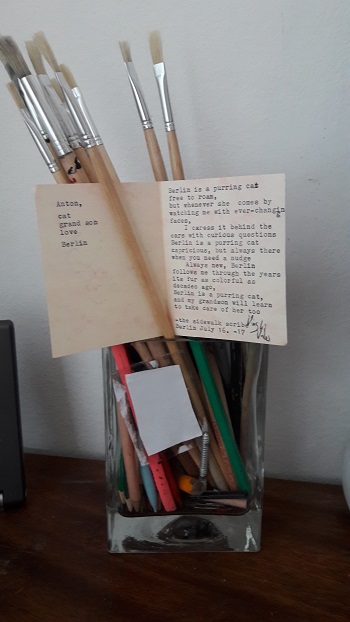 Anton,
cat
grand son
love
Berlin
Berlin is a purring cat
free to roam,
but whenever she comes by
watching me with ever-changing
faces,
I caress it behind the
ears with curious questions
Berlin is a purring cat
capricious, but always there
when you need a nudge
Always new, Berlin
follows me through the years
its fur as colorful as
decades ago,
Berlin is a purring cat,
and my grandson will learn
to take care of her too
-the sidewalk scribe
Berlin July 16. -17